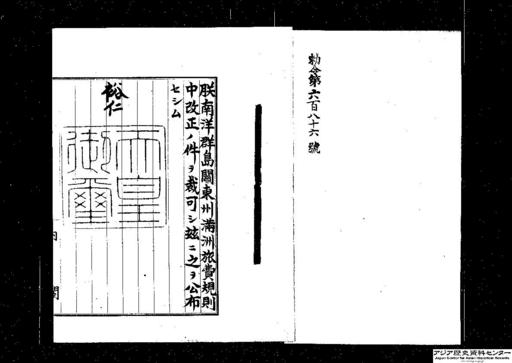 勅令第六百八十六號
朕南洋群島關東州滿洲旅費規則
中改正ノ件ヲ裁可シ玆ニ之ヲ公布
セシム
裕仁
天皇
御璽
内
閣
アジア歴史資料センター
Japan Center for Asian Historical Records